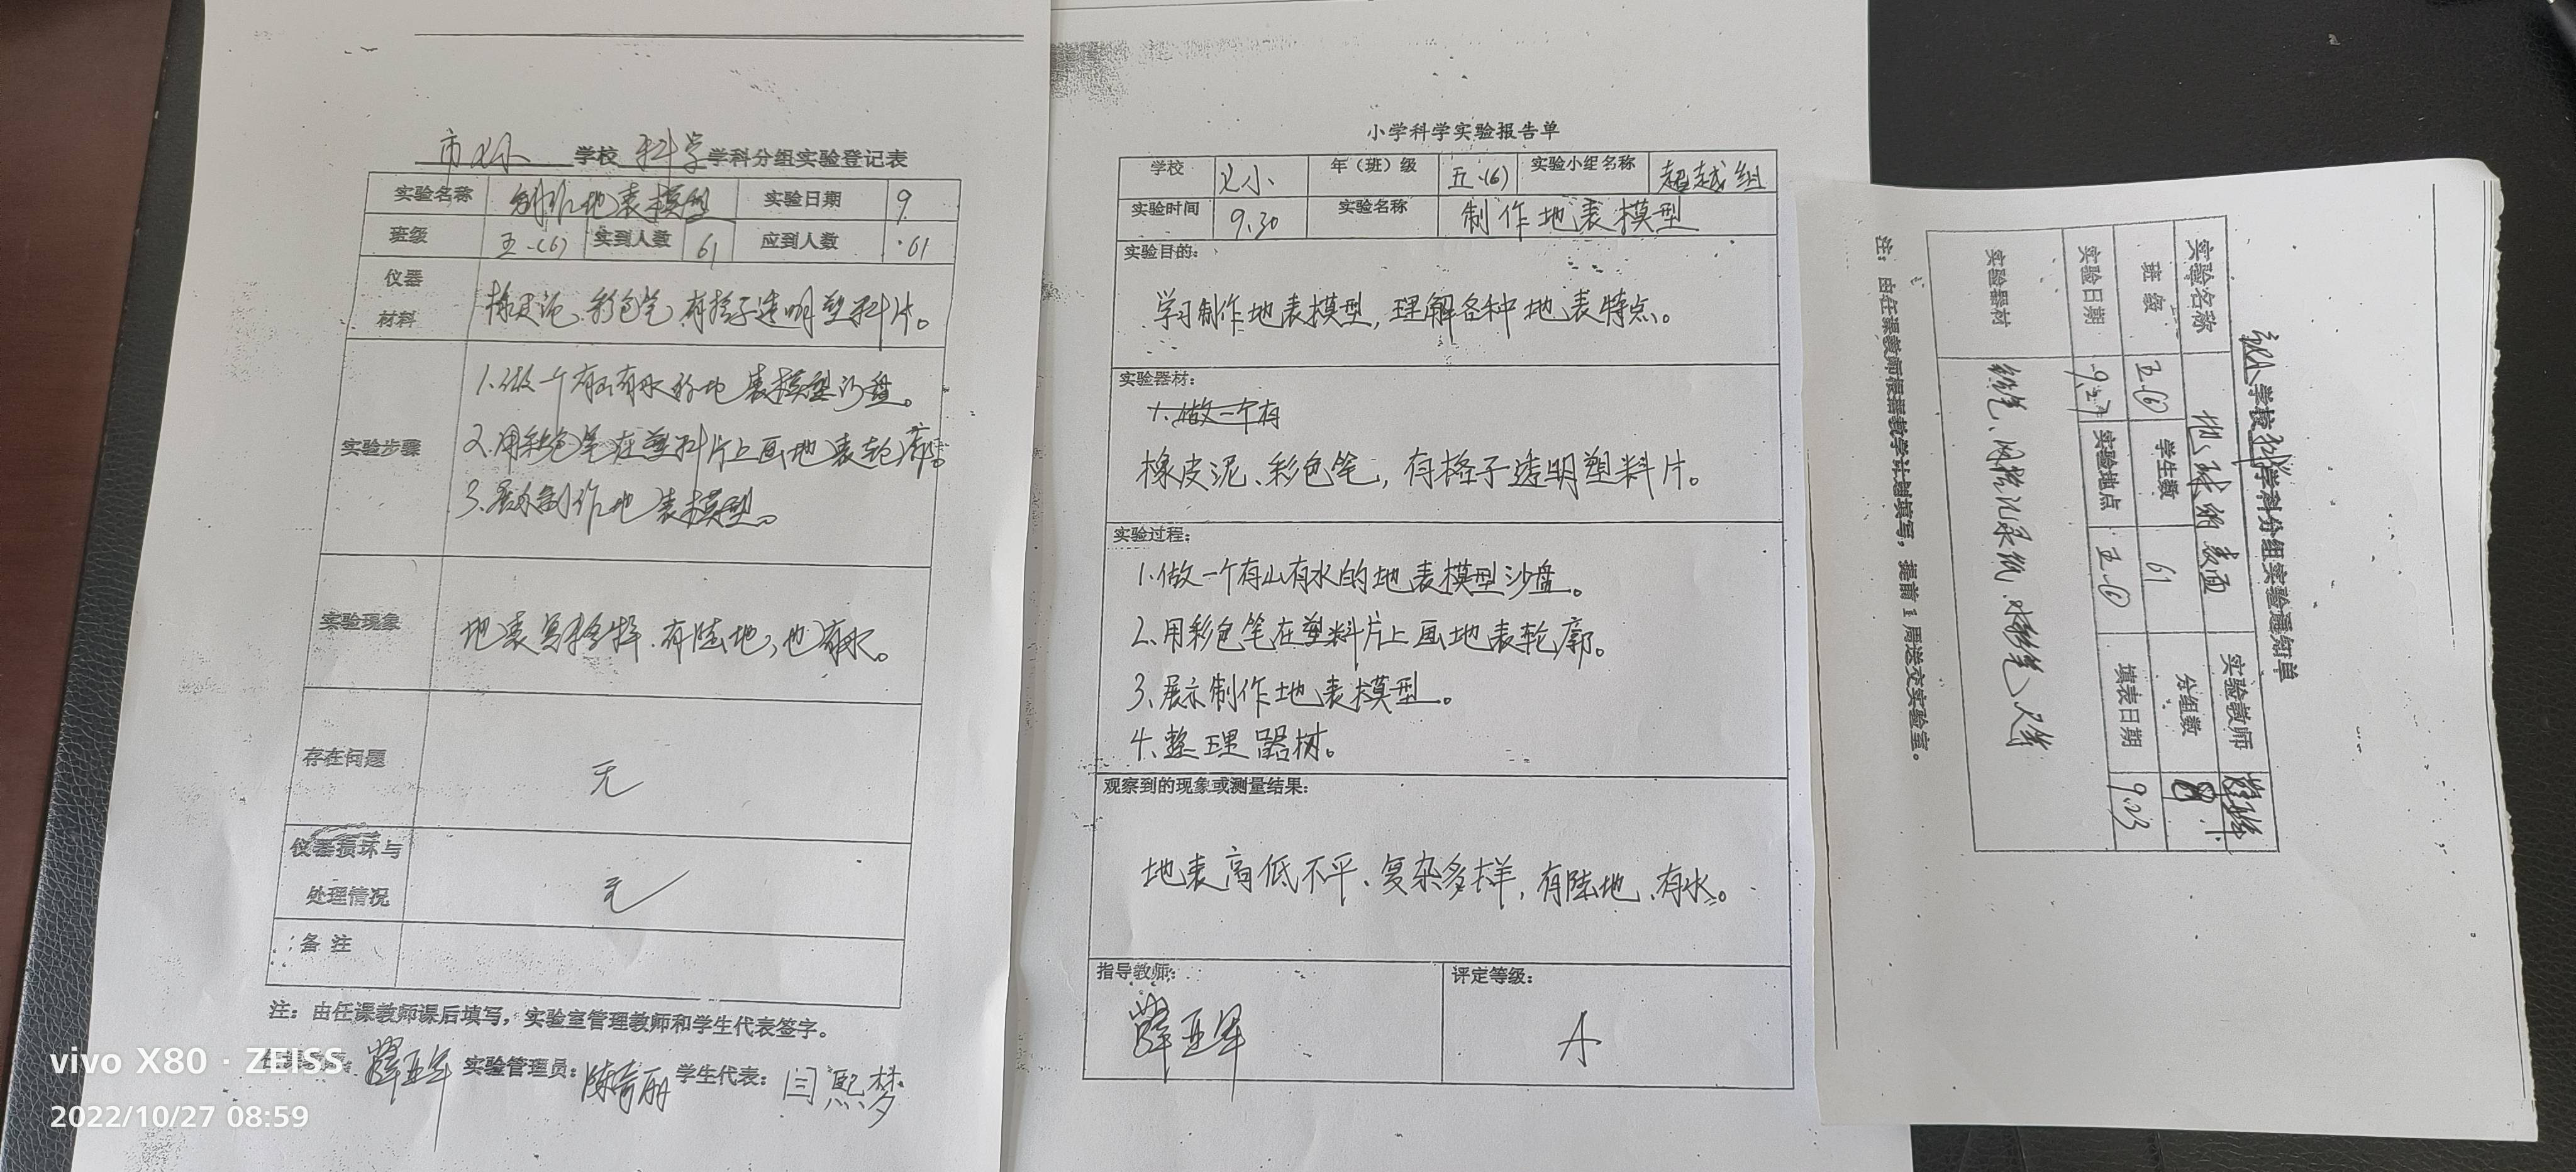 学校 科学 学科分组实验登记表
实验名称 制作地表模型 实验日期 9
班级 五.(6) 实到人数 61 应到人数 61
仪器
材料
橡皮泥、彩色笔、有格子透明塑料片。
实验步骤
1.做一个有山有水的地表模型沙盘。
2.用彩色笔在塑料片上画地表轮廓。
3.展示制作地表模型。
实验现象
地表 有陆地,也有水。
存在问题 无
仪器损坏与
处理情况
无
备注
注:由任课教师课后填写,实验室管理教师和学生代表签字。
薛亚军 实验管理员: 学生代表: 闫熙梦
vivo X80 · ZEISS
2022/10/27 08:59
小学科学实验报告单
学校 年(班)级 五.(6) 实验小组名称 超越组
实验时间 9.30 实验名称 制作地表模型
实验目的:
学习制作地表模型,理解各种地表特点。
实验器材:
1.做一个有
橡皮泥、彩色笔,有格子透明塑料片。
实验过程:
1.做一个有山有水的地表模型沙盘。
2.用彩色笔在塑料片上画地表轮廓。
3.展示制作地表模型。
4.整理器材。
观察到的现象或测量结果:
地表高低不平、复杂多样,有陆地、有水。
指导教师: 评定等级:
薛亚军 A
学校 科学 学科分组实验通知单
实验名称 地球的表面 实验教师
班级 五.(6) 学生数 61 分组数 8
实验日期 9.27 实验地点 五.(6) 填表日期 9.23
实验器材
铅笔、网格记录纸、水彩笔、尺等
注:由任课教师根据教学计划填写,提前1周送交实验室。